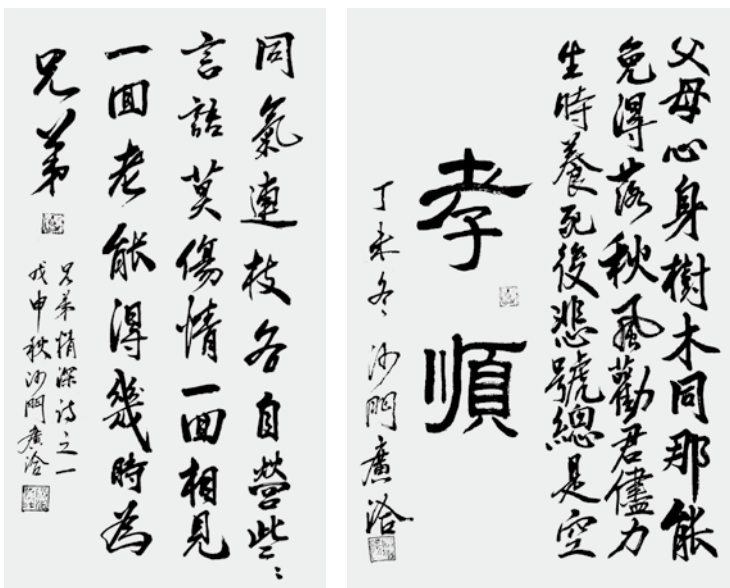 父母心身樹木同那能
免得落秋風勸君儘力
生時養死後悲號總是空
孝順
丁未冬沙門廣洽
同氣連枝各自營些〻
言語莫傷情一回相見
一回老能得幾時為
兄弟
兄弟情深詩之一
戊申秋沙門廣洽